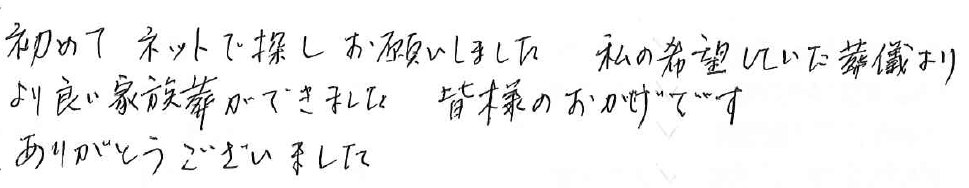 初めて ネットで探し お願いしました 私の希望していた葬儀より
より良い家族葬ができました 皆様のおかげです
ありがとうございました